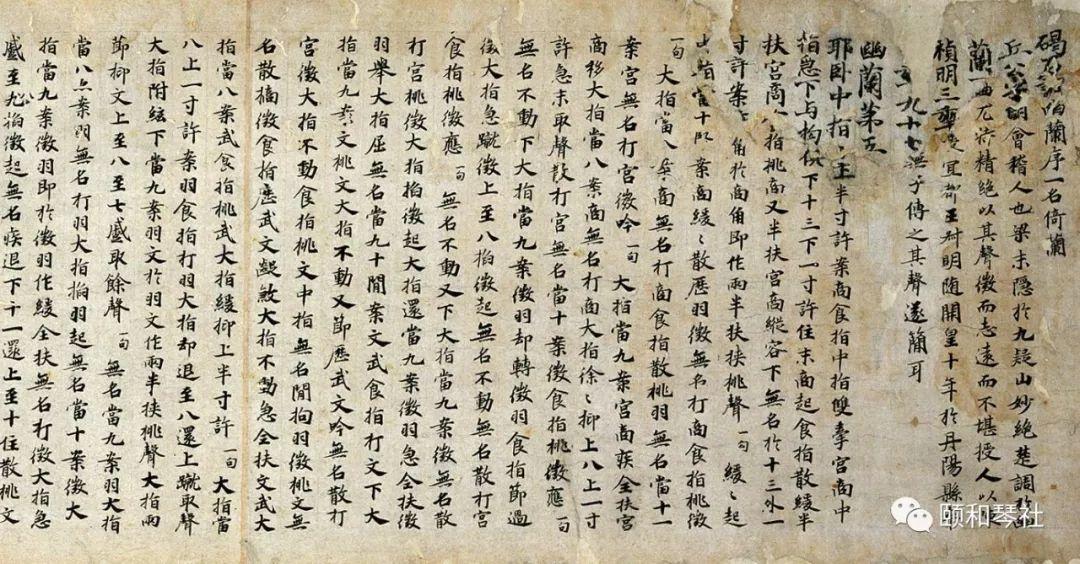 碣石調幽蘭序一名倚蘭
丘公字明會稽人也梁末隱於九疑山妙絕楚調於
蘭一曲尤特精絕以其聲微而志遠而不堪授人以陳
禎明三年授宜都王叔明随開皇十年於丹陽縣
年九十七無子傳之其聲遂簡耳
幽蘭第五
耶臥中指〻上半寸許案商食指中指雙牽宮商中
指急下与拘俱下十三下一寸許住末商起食指散緩半
扶宮商食指挑商又半扶宮商縱容下無名於十三外一
寸許案商角於商角即作兩半扶挾挑聲一句 緩〻起
指當十案商緩〻散歷羽徵無名打商食指挑徵
一句 大指當八案商無名打商食指散挑羽無名當十一
案宮無名打宮徵吟一句 大指當九案宮商疾全扶宮
商移大指當八案商無名打商大指徐〻抑上八上一寸
許急末取聲散打宮無名當十案徵食指挑徵應一句
無名不動下大指當九案徵羽却轉徵羽食指節過
徵大指急蹴徵上至八掐徵起無名不動無名散打宮
食指挑徵應一句 無名不動又下大指當九案徵無名散
打宮桃徵大指掐徵起大指還當九案徵羽急全扶徵
羽舉大指屈無名當九十間案文武食指打文下大
指當九案文桃文大指不動又節歷武文吟無名散打
宮徵大指不動食指挑文中指無名間拘羽徵桃文無
名散摘徵食指歷武文齪敠大指不動急全扶文武大
指當八案武食指挑武大指緩抑上半寸許一句 大指當
八上一寸許案羽食指打羽大指却退至八還上蹴取聲
大指附絃下當九案羽文於羽文作兩半扶挾挑聲大指兩
節抑文上至八至七蹙取餘聲一句 無名當九案羽大指
當八案羽無名打羽大指掐羽起無名當十案徵大
指當九案徵羽即於徵羽作緩全扶無名打徵大指急
蹙至八掐徵起無名疾退下十一還上至十住散挑文
颐和琴社